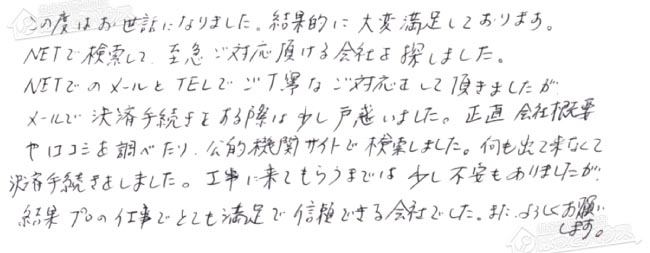 この度はお世話になりました。結果的に大変満足しております。
NETで検索して、至急ご対応頂ける会社を探しました。
NETでのメールとTELでご丁寧なご対応をして頂きましたが
メールで決済手続きをする際は少し戸惑いました。正直会社概要
や口コミを調べたり、公的機関サイトで検索しました。何も出て来なくて
決済手続きをしました。工事に来てもらうまでは少し不安もありましたが、
結果プロの仕事でとても満足で信頼できる会社でした。また、よろしくお願い
します。